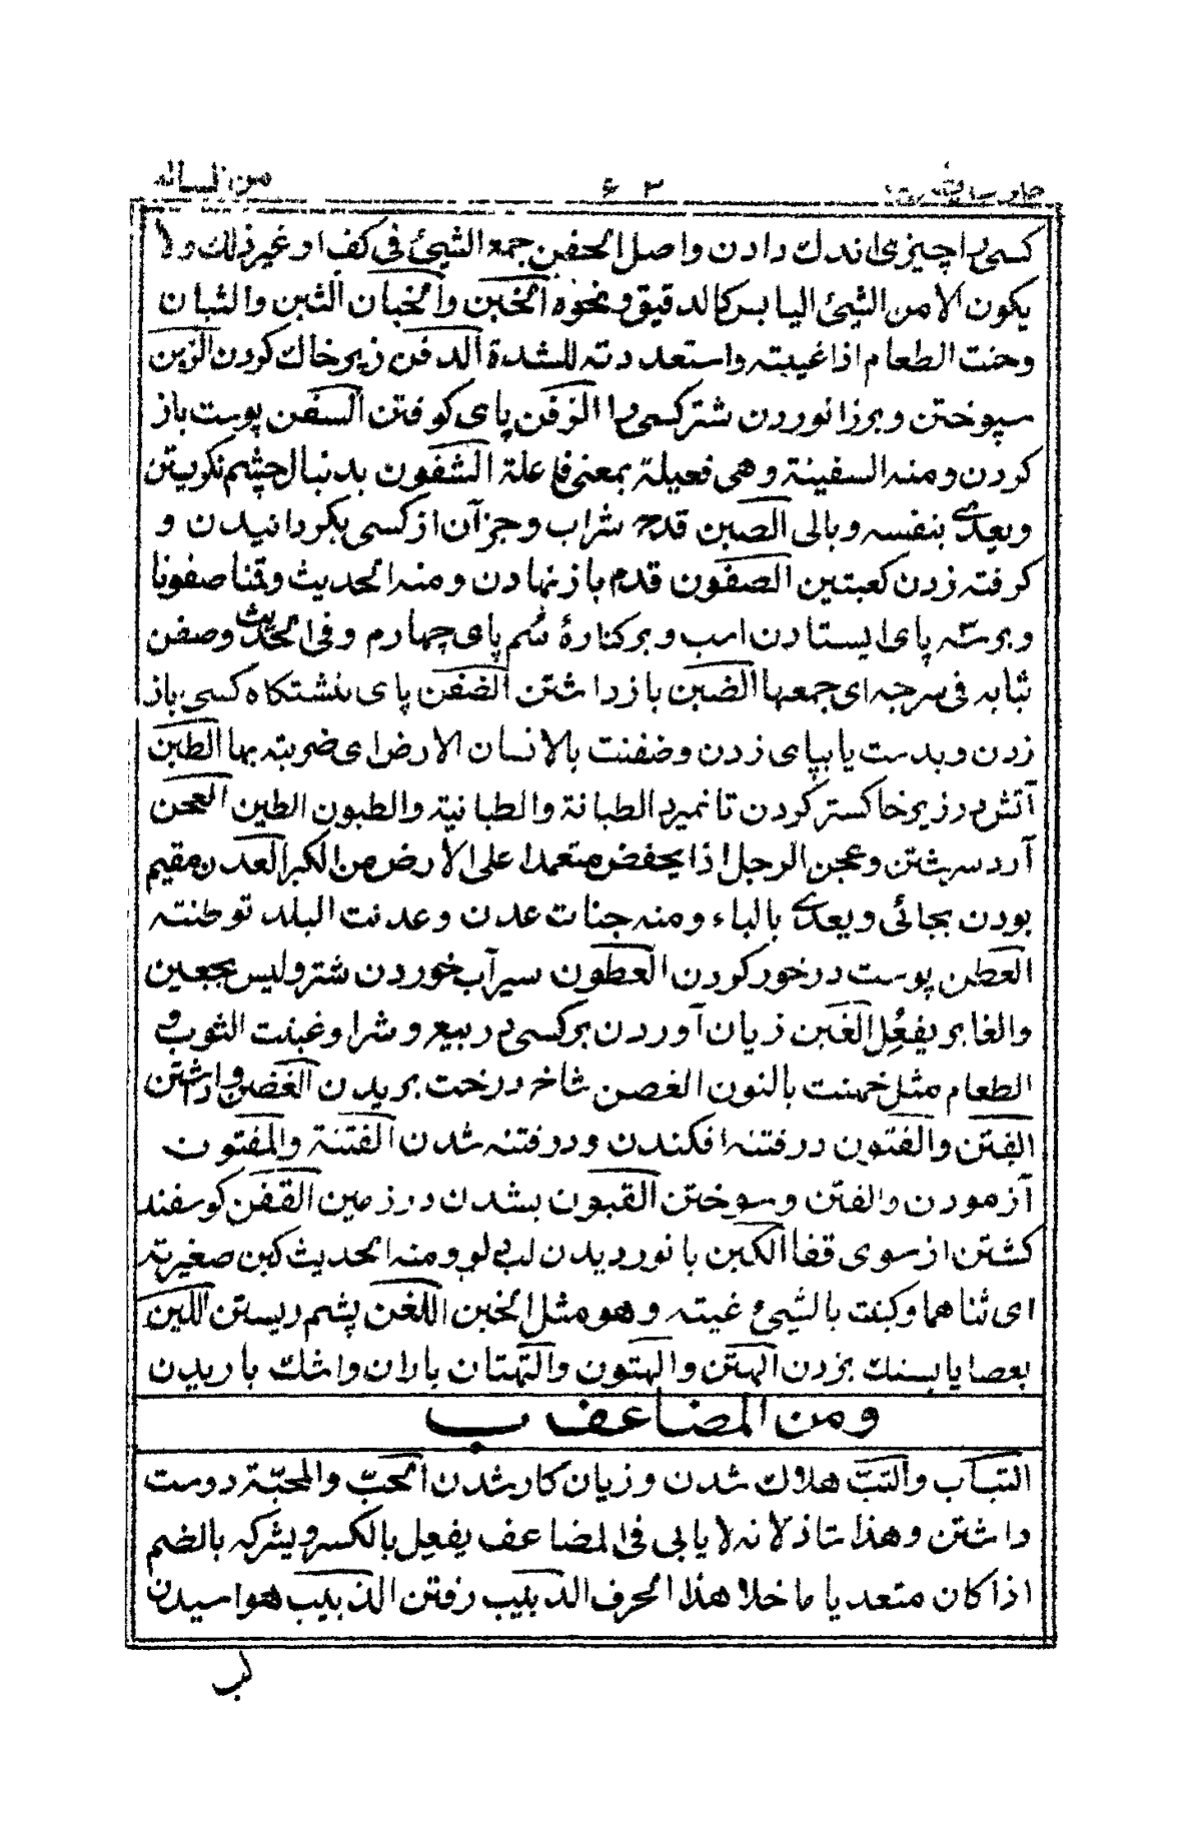 ۶۳
کسی را چیزی اندك دادن واصل الحفن جمع الشیئ فی کف او غیر ذلك ولا
یکون الا من الشیئ الیابس کالدقیق ونحوه الخبن والخبان الثبن والثبان
وخنت الطعام اذا غیبته واستعددته للشدة الدفن زیر خاك کردن الزبن
سپوختن وبر زانو زدن شتر کسی را الزفن پای کوفتن السفن پوست باز
کردن ومنه السفینة وهی فعیلة بمعنی فاعلة الشفون بدنبال چشم نکریستن
ویعدی بنفسه وبالی الصبن قدح شراب وجز آن از کسی بکردانیدن و
کرفته زدن کعبتین الصفون قدم باز نهادن ومنه الحدیث وقمنا صفونا
وبر سه پای ایستادن اسب وبر کنارهٔ سُم پای چهارم وفی الحدیث وصفن
ثیابه فی سرجه ای جمعها الضبن باز داشتن الضفن پای بنشتکاه کسی باز
زدن وبدست یا بپای زدن وضفنت بالانسان الارض ای ضربته بها الطبن
آتش در زیر خاکستر کردن تا نمیرد الطبانة والطبانیة والطبون الطین العجن
آرد سرشتن وعجن الرجل اذا یحفض متعمدا علی الارض من الکبر العدن مقیم
بودن بجائی ویعدی بالباء ومنه جنات عدن وعدنت البلد توطنته
العطن پوست در خور کردن العطون سیر آب خوردن شتر ولیس بجعین
والغابر یفعُِل الغبن زیان آوردن بر کسی در بیع وشرا وغبنت الثوب و
الطعام مثل خبنت بالنون الغصن شاخ درخت بریدن الغضن وا داشتن
الفتن والفتون در فتنه افکندن ودر فتنه شدن الفتنة والمفتون
آزمودن والفتن وسوختن القبون بشدن در زمین القفن کوسفند
کشتن از سوی قفا الکبن با نوردیدن لب لو ومنه الحدیث کبن صغیرته
ای ثناهما وکبنت بالشیئ غیته وهو مثل الخبن اللغن پشم ریستن اللبن
بعصا یا بسنك بزدن الهتن والهتون والتهتان باران واشك باریدن
ومن المضاعف ب
التباب والتبّ هلاك شدن وزیان کار شدن الحبّ والمحبّة دوست
داشتن وهذا شاذ لانه لا یابی فی المضاعف یفعِل بالکسر ویشرکه بالضم
اذا کان متعدیا ما خلا هذا الحرف الدبیب رفتن الذبیب هواسیدن
لب